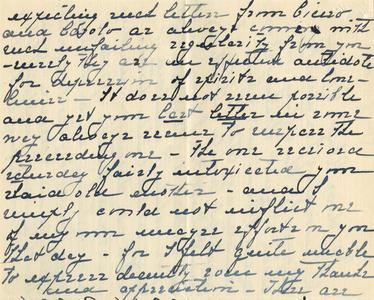 expecting next letter from Cicero -
and Catolo as always comes with
such unfailing regularity from you
- surely they are an efficient antidote
for depression of spirits and lone-
- It does not seem possible
and yet your last letter in some
way always seems to surpass the
preceeding one - The one received
yesterday fairly intoxicated your
staid old mother - and I
simply could not inflict one
of my own meagre efforts on you
that day - for I felt quite unable
to express decently even my thanks
and appreciation - There are